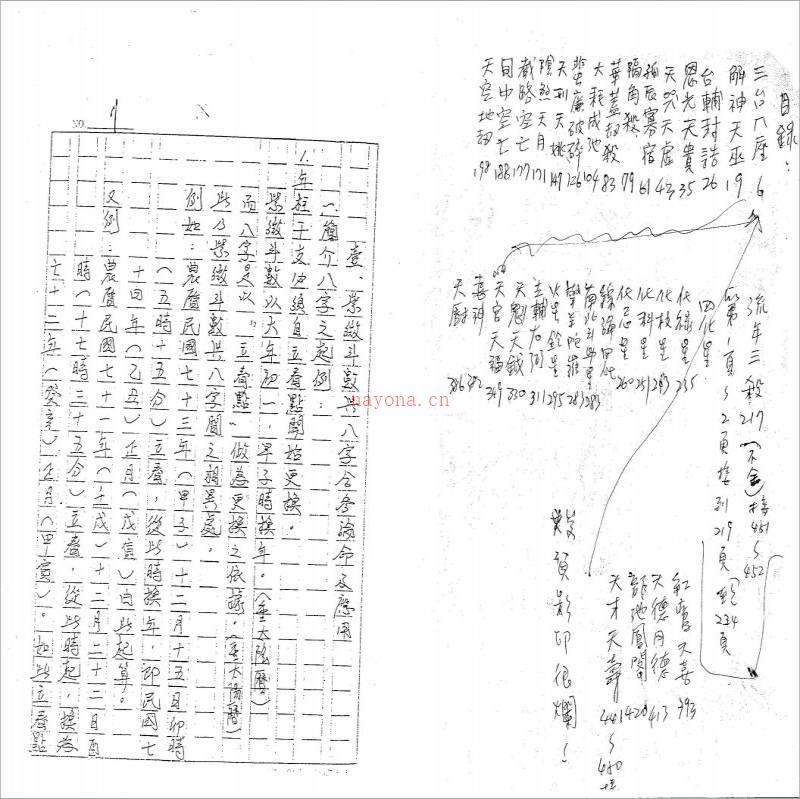 目錄：
三台八座 6
解神天巫 19
台輔封誥 26
恩光天貴 35
天哭天虛 43
孤辰寡宿 61
隔角殺 79
華蓋劫殺 83
大耗咸池 104
蜚廉破碎 126
天刑天姚 149
陰煞天月 171
截路空亡 177
旬中空亡 188
天空地劫 198
流年三殺 217 (不全) 接451~452
第1頁~2頁接到219頁 234頁
四化星
化祿星 235
化權星 283
化科星 251
化忌星 260
綜論四化
南北斗 星 283
擎羊陀羅 287
火星鈴星 295
左輔右弼 311
天魁天鉞 330
天官天福 349
喜神 382
天廚 386
紅鸞天喜 393
天德月德 413
龍池鳳閣 420
天才天壽 441~450
數頁影印很爛！
NO. 1
壹、紫微斗數與八字合參論命及應用
一、簡介八字之起例：
1.年柱干支必須自立春點開始更換。
紫微斗數以大年初一，早子時換年。(重太陰曆)
而八字是以"立春點"做為更換之依據。(重太陽曆)
此乃紫微斗數與八字間之相異處。
例如：農曆民國七十三年(甲子)十二月十五日卯時
(五時十五分)立春，從此時換年，即民國七
十四年(乙丑)正月(戊寅)由此起算。
又例：農曆民國七十一年(壬戌)十二月二十二日酉
時(十七時三十五分)立春，從此時起，換為
七十二年(癸亥)正月(甲寅)。如此立春點
nayona.cn